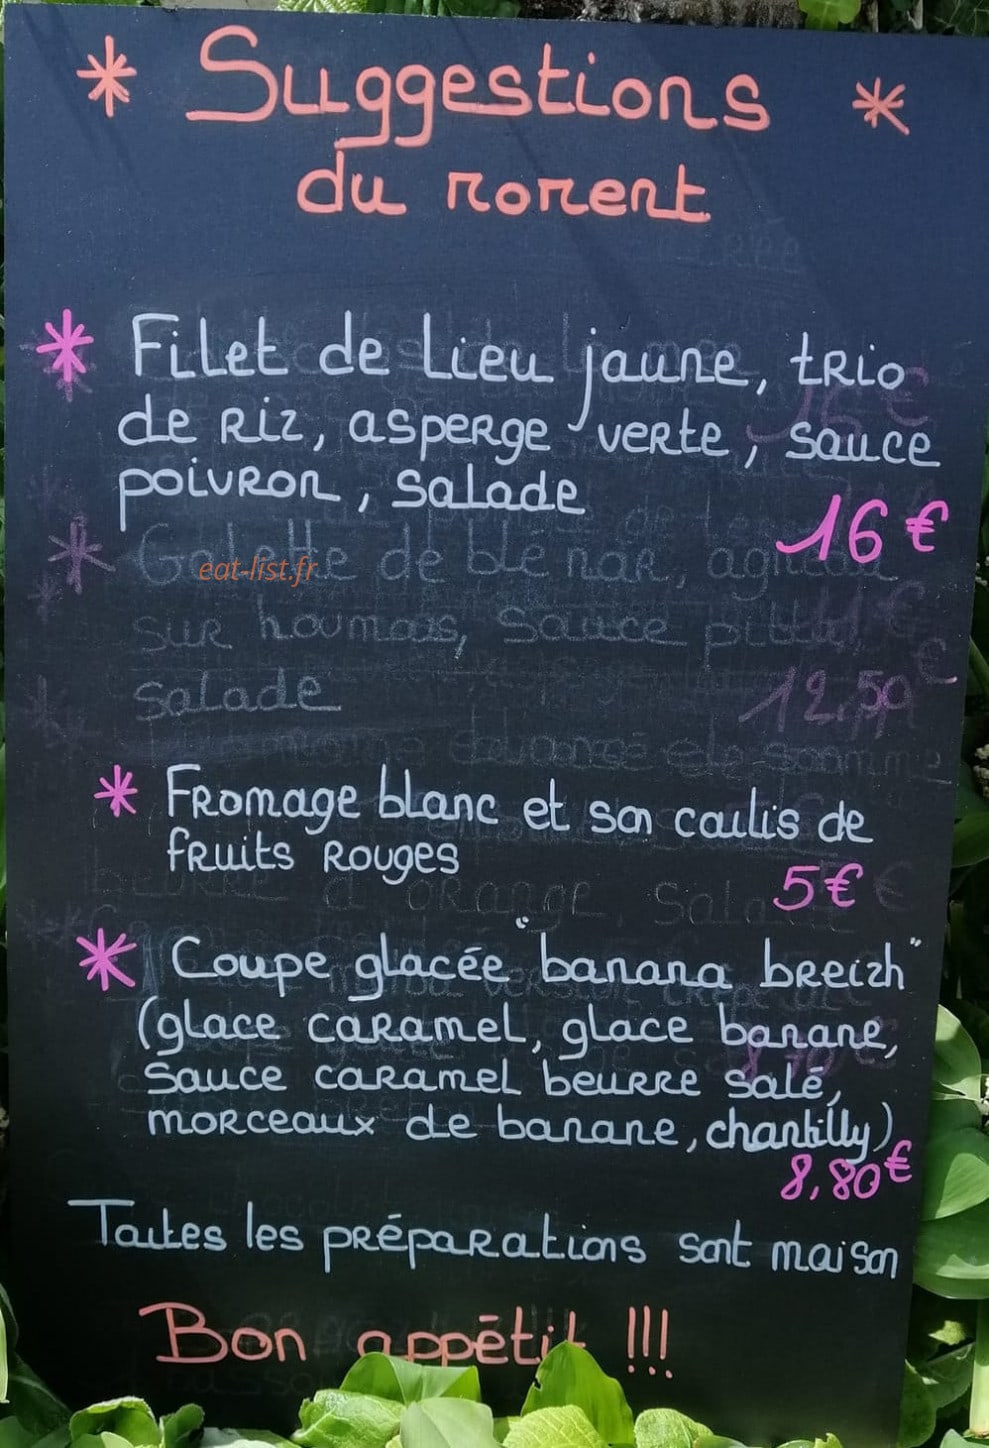 * Suggestions *
du moment
* Filet de Lieu jaune, trio
de riz, asperge verte, sauce
poivron, salade
16 €
* Galette de blé noir, agneau
eat-list.fr
sur houmous, Sauce
salade
12,50 €
* Fromage blanc et son coulis de
fruits rouges
5 €
* Coupe glacée "banana breizh"
(glace caramel, glace banane,
sauce caramel beurre salé,
morceaux de banane, chantilly)
8,80 €
Toutes les préparations sont maison
Bon appétit !!!